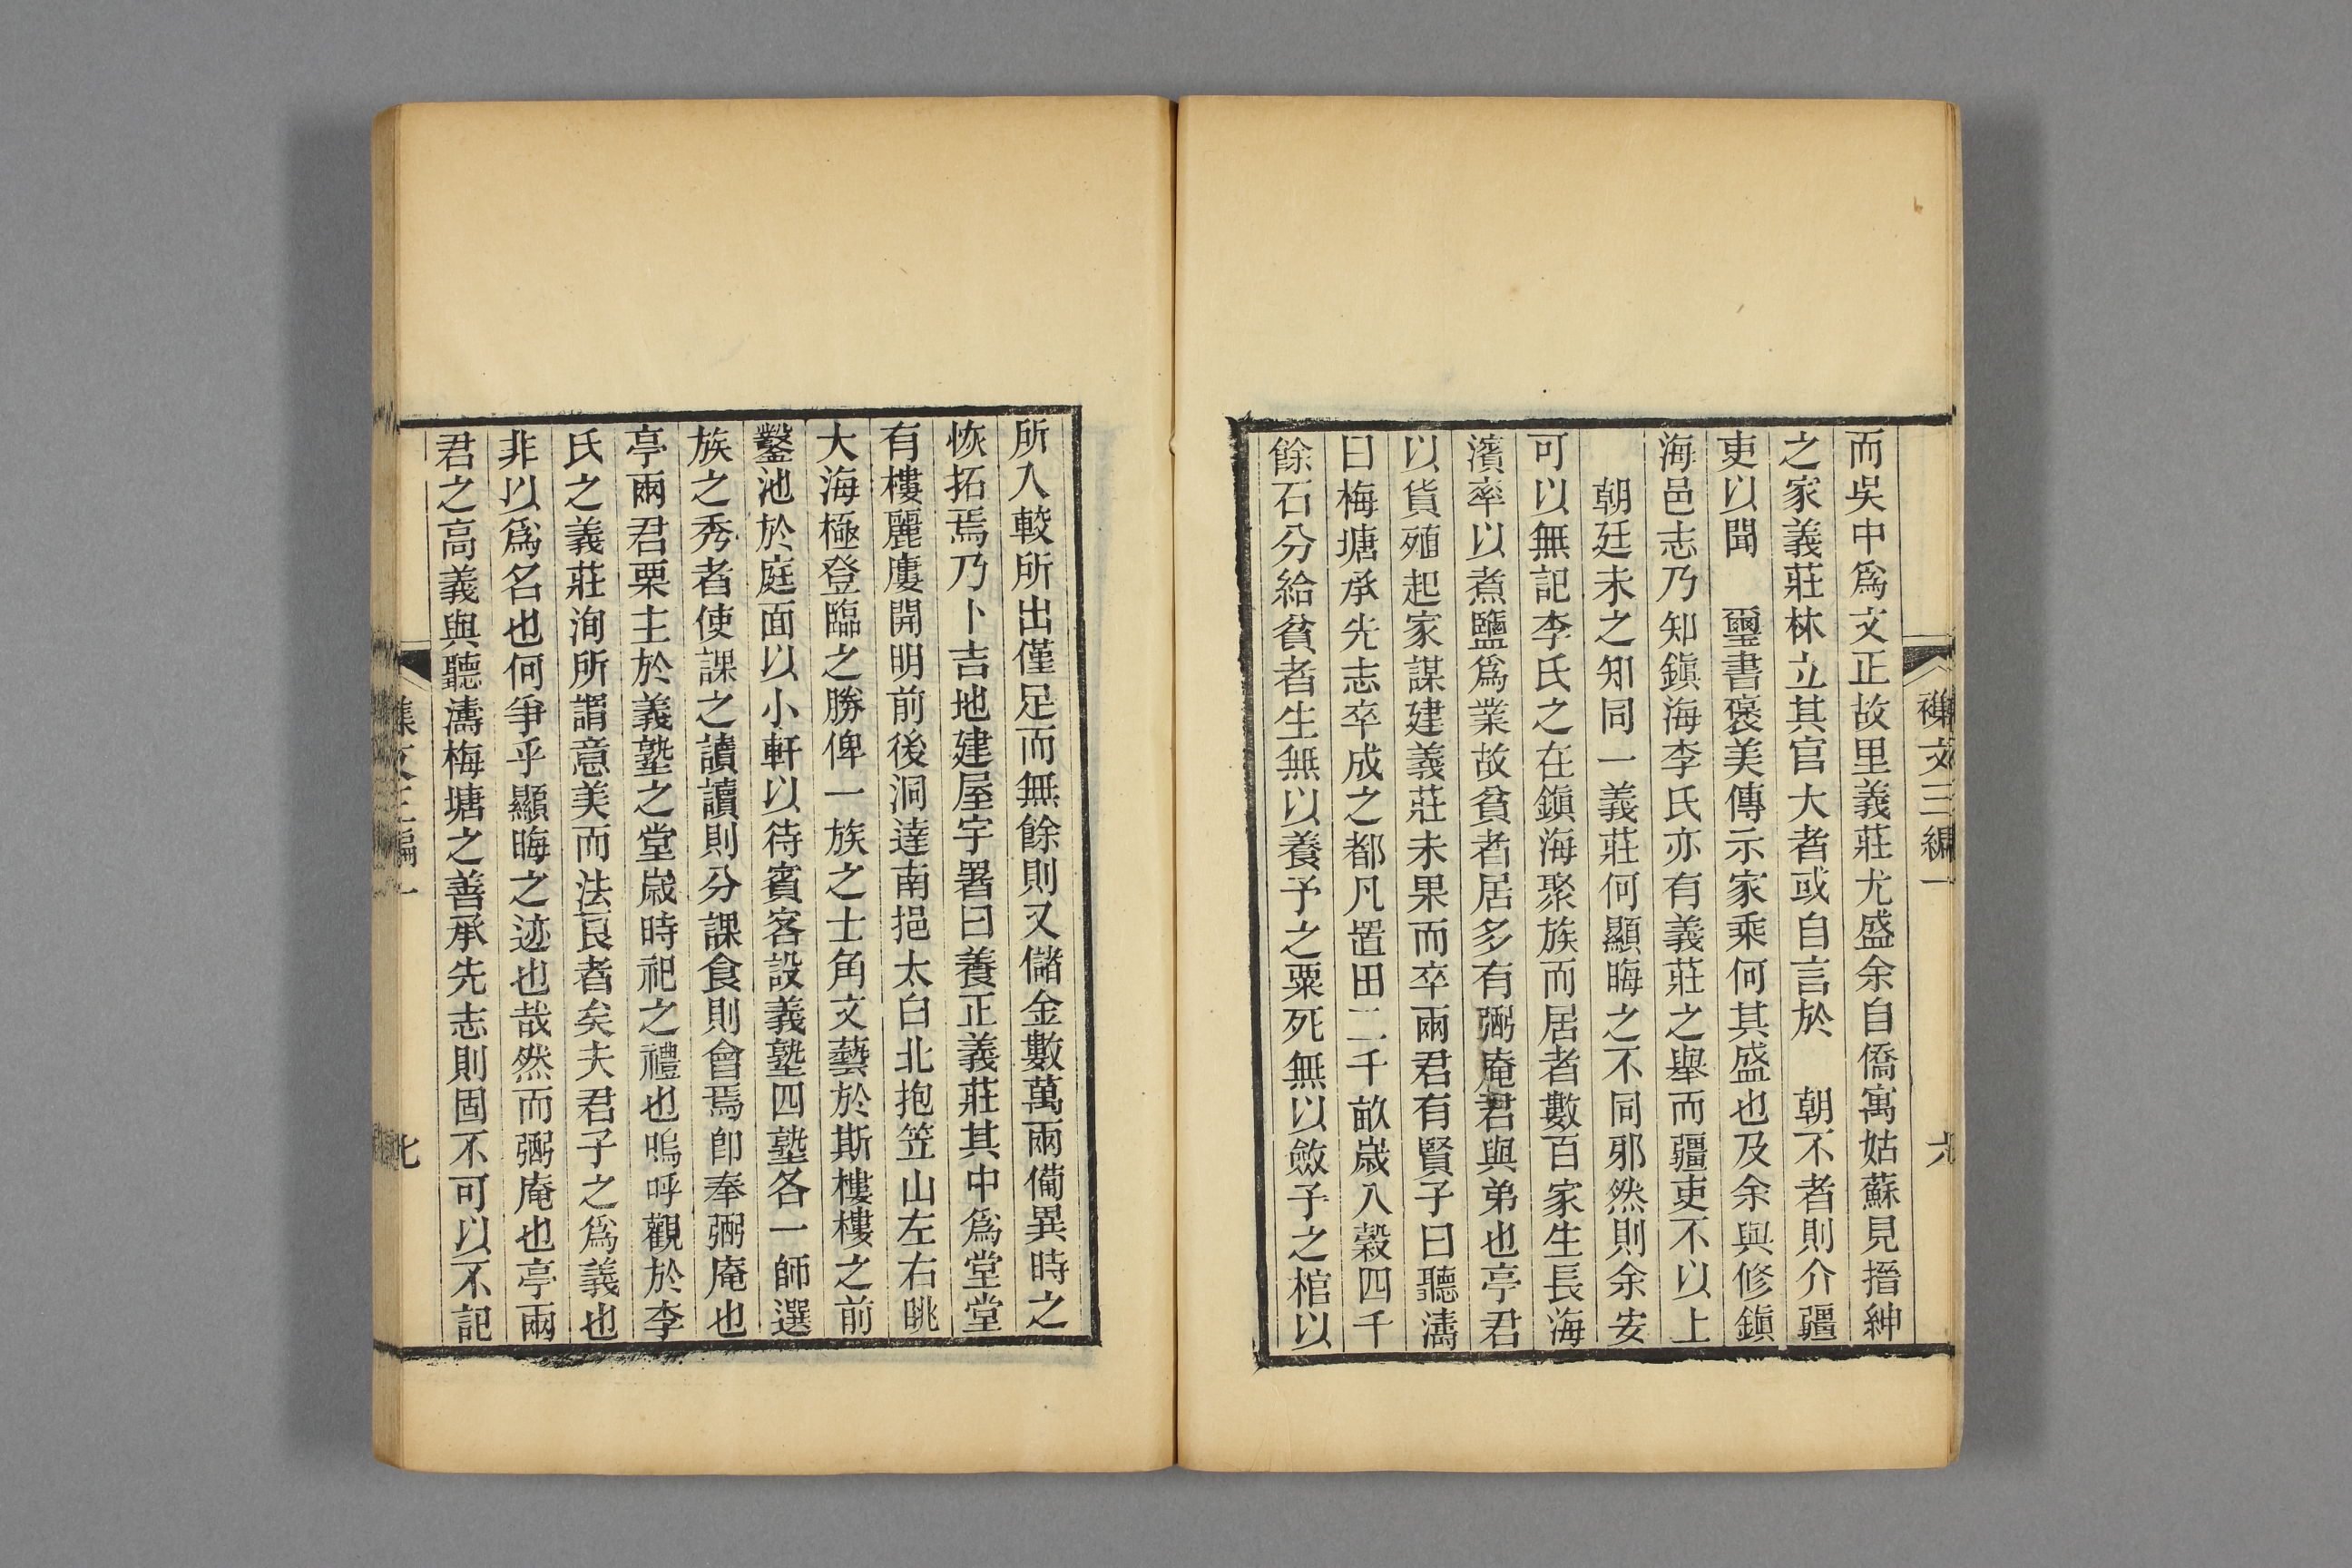 襍文三編一
六
而吳中爲文正故里義莊尤盛余自僑寓姑蘇見搢紳
之家義莊林立其官大者或自言於　朝不者則介疆
吏以聞　璽書褒美傳示家乘何其盛也及余與修鎭
海邑志乃知鎭海李氏亦有義莊之舉而疆吏不以上
朝廷未之知同一義莊何顯晦之不同邪然則余安
可以無記李氏之在鎭海聚族而居者數百家生長海
濱率以煮鹽爲業故貧者居多有弼庵君與弟也亭君
以貨殖起家謀建義莊未果而卒兩君有賢子曰聽濤
曰梅塘承先志卒成之都凡置田二千畝歲入穀四千
餘石分給貧者生無以養予之粟死無以斂予之棺以
所入較所出僅足而無餘則又儲金數萬兩備異時之
恢拓焉乃卜吉地建屋宇署曰養正義莊其中爲堂堂
有樓麗廔開明前後洞達南挹太白北抱笠山左右眺
大海極登臨之勝俾一族之士角文藝於斯樓樓之前
鑿池於庭面以小軒以待賓客設義塾四塾各一師選
族之秀者使課之讀讀則分課食則會焉卽奉弼庵也
亭兩君栗主於義塾之堂歲時祀之禮也嗚呼觀於李
氏之義莊洵所謂意美而法良者矣夫君子之爲義也
非以爲名也何爭乎顯晦之迹也哉然而弼庵也亭兩
君之高義與聽濤梅塘之善承先志則固不可以不記
集文三編一
七